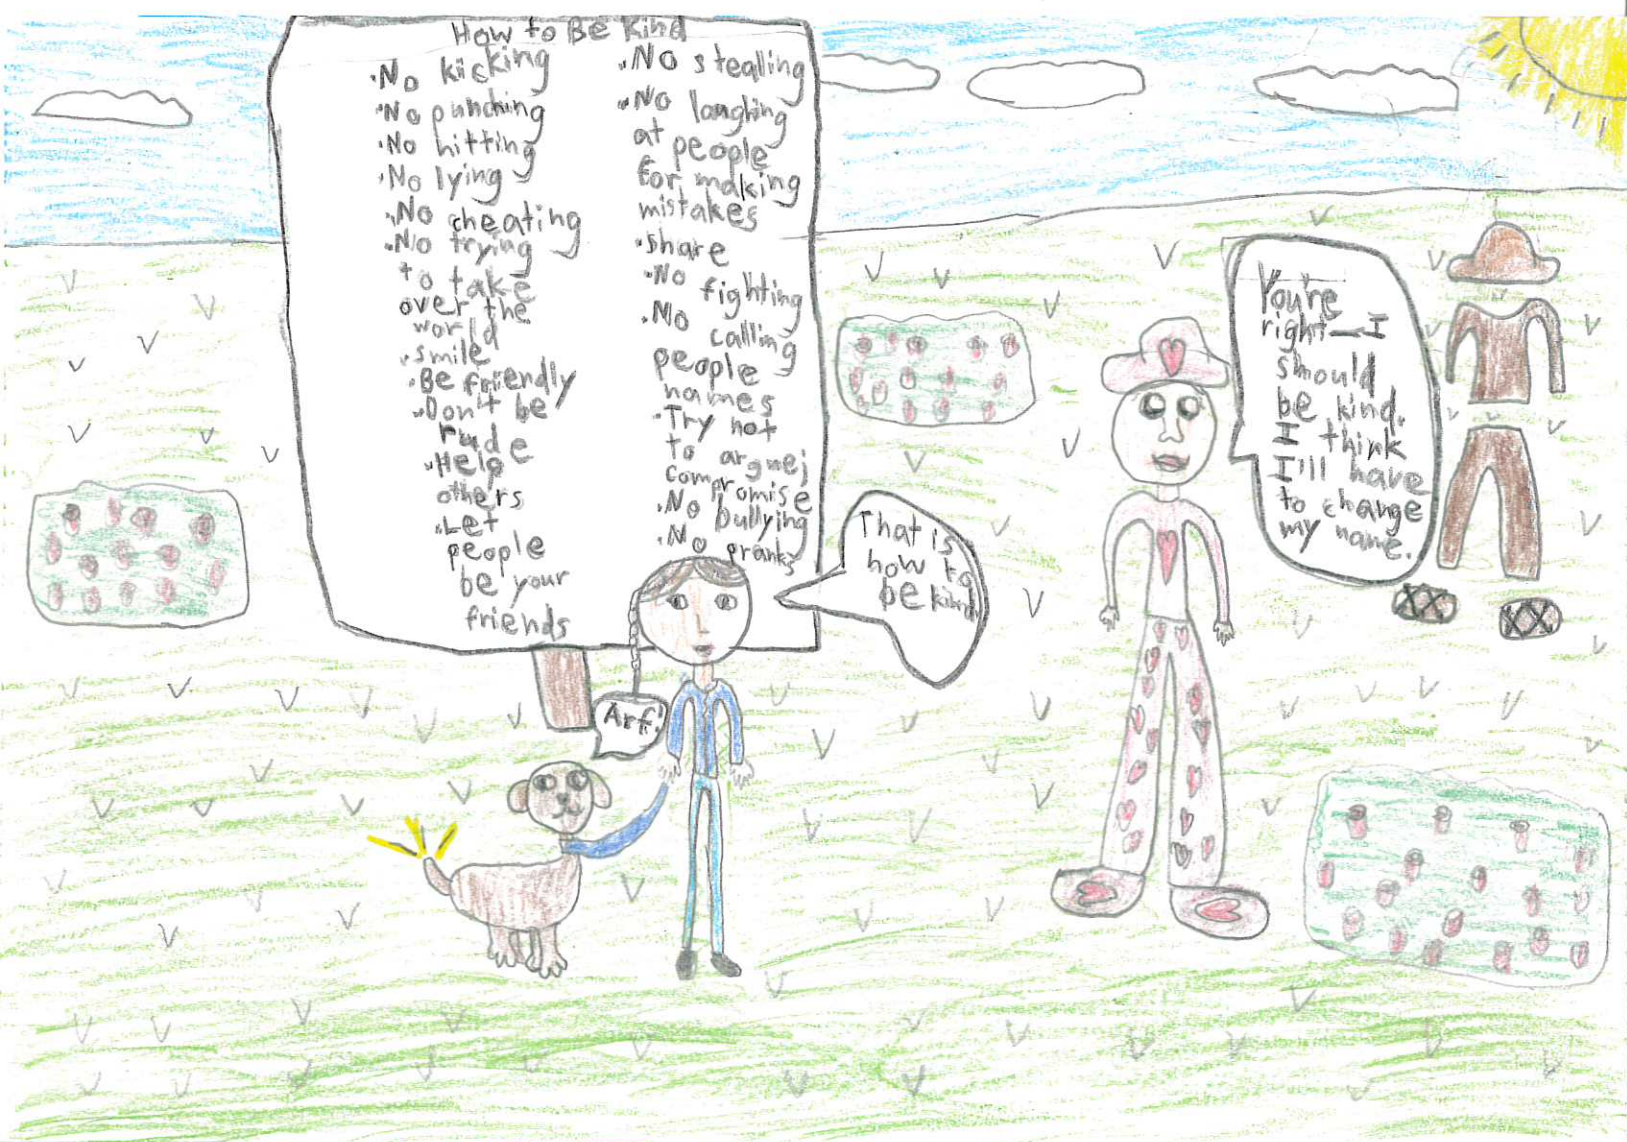 How to Be Kind
·No kicking
·No punching
·No hitting
·No lying
·No cheating
·No trying
to take
over the
world
·smile
·Be friendly
·Don't be
rude
·Help
others
·Let
people
be your
friends
·No stealling
·No laughing
at people
for making
mistakes
·share
·No fighting
·No calling
people
names
·Try not
to argue;
compromise
·No bullying
·No pranks
That is
how to
be kind
Arf!
You're
right—I
should
be kind.
I think
I'll have
to change
my name.